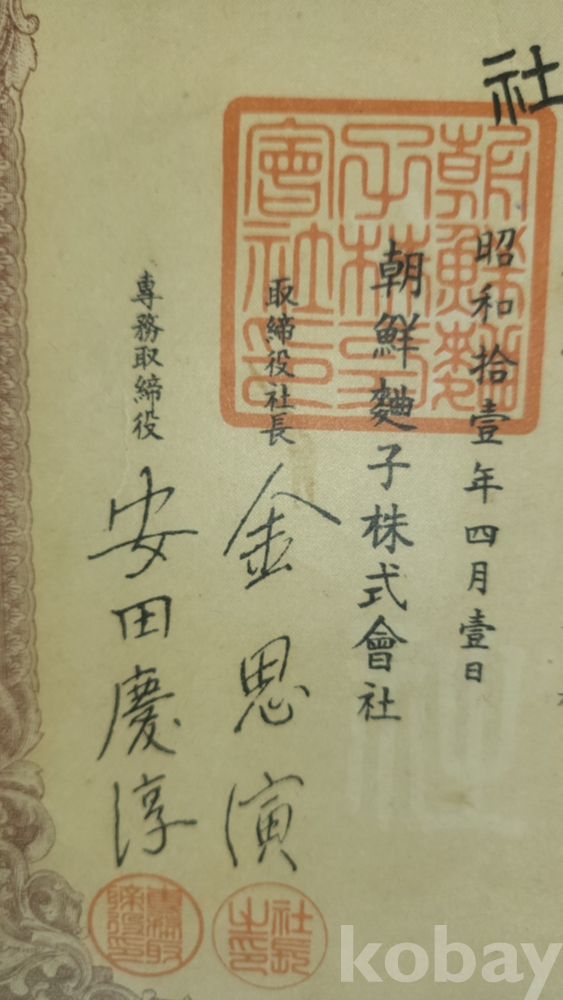 社
昭和拾壹年四月壹日
朝鮮麯子株式會社
取締役社長
金思演
專務取締役
安田慶淳
朝鮮麯
子株式
會社印
社長
之印
專務取
締役印
kobay